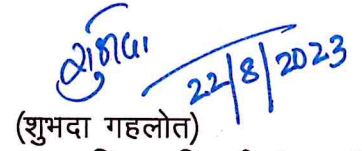 शुभदा
22/8/2023
(शुभदा गहलोत)